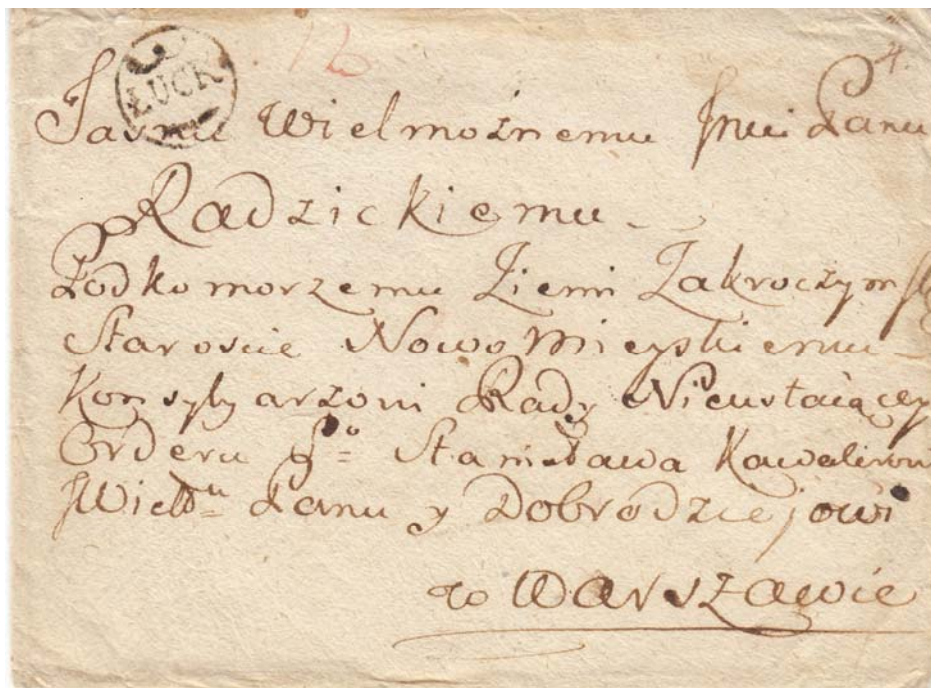 12
4.
ŁUCK
Jasnie Wielmożnemu Jmci Panu
Radzickiemu
Podkomorzemu Ziemi Zakroczymsky
Staroscie Nowo Mieyskiemu
Konsylyarzowi Rady Nieustaiącey
Orderu Sº Stanisława Kawalerowi
Panu y Dobrodziejowi
w Warszawie